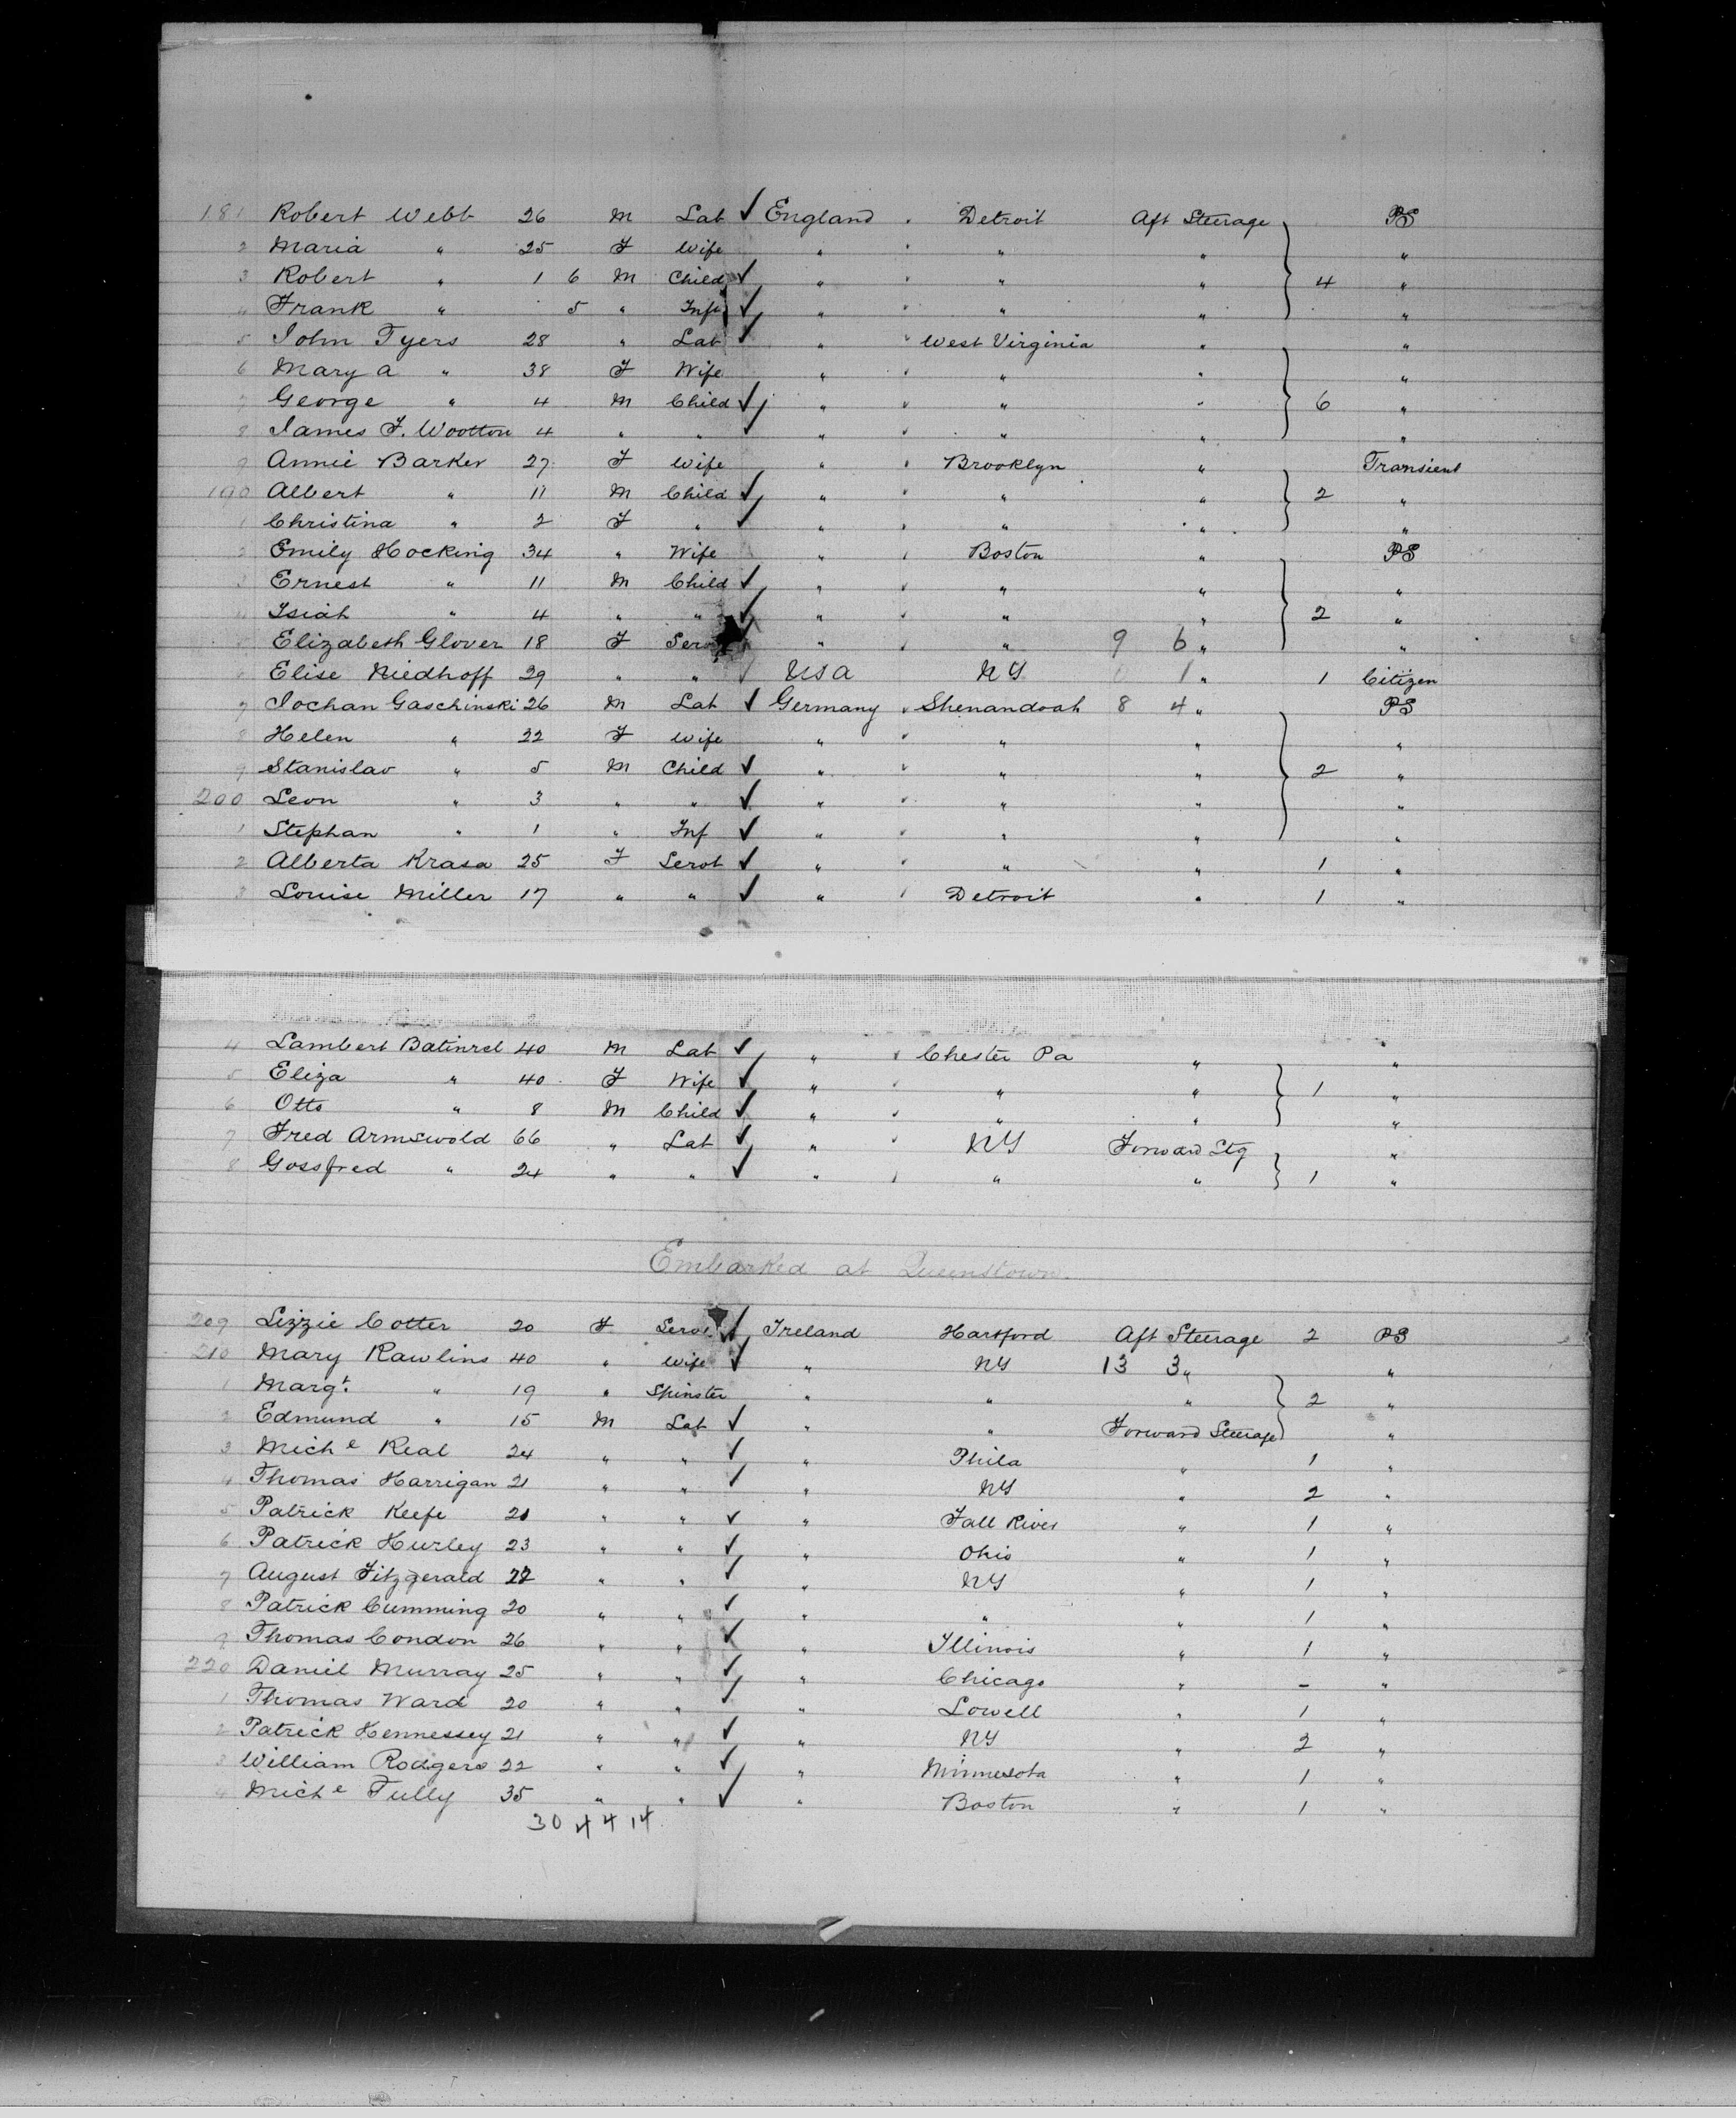 181 Robert Webb 26 M Lab ✓ England " Detroit Aft Steerage PS
2 Maria " 25 F Wife " " " " "
3 Robert " 1 6 M Child ✓ " " " " 4 "
4 Frank " 5 " Inft ✓ " " " " "
5 John Tyers 28 " Lab ✓ " " West Virginia " "
6 Mary A " 38 F Wife " " " " "
7 George " 4 M Child ✓ " " " " 6 "
8 James F. Wootton 4 " " ✓ " " " " "
9 Annie Barker 27 F Wife " " Brooklyn " Transient
190 Albert " 11 M Child ✓ " " " " 2 "
1 Christina " 2 F " ✓ " " " " "
2 Emily Hocking 34 " Wife " " Boston " PS
3 Ernest " 11 M Child ✓ " " " " "
4 Isiah " 4 " " ✓ " " " " 2 "
5 Elizabeth Glover 18 F Serv " " " 9 6 " "
6 Elise Niedhoff 29 " " ✓ USA NY 0 1 " 1 Citizen
7 Jochan Gaschinski 26 M Lab ✓ Germany " Shenandoah 8 4 " PS
8 Helen " 22 F Wife " " " " "
9 Stanislav " 5 M Child ✓ " " " " 2 "
200 Leon " 3 " " ✓ " " " " "
1 Stephan " 1 " Inf ✓ " " " " "
2 Alberta Krasa 25 F Servt ✓ " " " " 1 "
3 Louise Miller 17 " " ✓ " " Detroit " 1 "
4 Lambert 40 M Lab ✓ " " Chester Pa " "
5 Eliza " 40 F Wife ✓ " " " " 1 "
6 Otto " 8 M Child ✓ " " " " "
7 Fred Armswold 66 " Lab ✓ " " NY Forward Stg "
8 Gossfred " 24 " " ✓ " " " " 1 "
Embarked at Queenstown.
209 Lizzie Cotter 20 F Servt ✓ Ireland Hartford Aft Steerage 2 PS
210 Mary Rawlins 40 " Wife ✓ " NY 13 3 " "
1 Margt. " 19 " Spinster " " " 2 "
2 Edmund " 15 M Lab ✓ " " Forward Steerage "
3 Miche Real 24 " " ✓ " Phila " 1 "
4 Thomas Harrigan 21 " " ✓ " NY " 2 "
5 Patrick Keefe 21 " " ✓ " Fall River " 1 "
6 Patrick Hurley 23 " " ✓ " Ohio " 1 "
7 August Fitzgerald 22 " " ✓ " NY " 1 "
8 Patrick Cumming 20 " " ✓ " " " 1 "
9 Thomas Condon 26 " " ✓ " Illinois " 1 "
220 Daniel Murray 25 " " ✓ " Chicago " - "
1 Thomas Ward 20 " " ✓ " Lowell " 1 "
2 Patrick Hennessey 21 " " ✓ " NY " 2 "
3 William Rodgers 22 " " ✓ " Minnesota " 1 "
4 Miche Tully 35 " " ✓ " Boston " 1 "
30 4 4 14